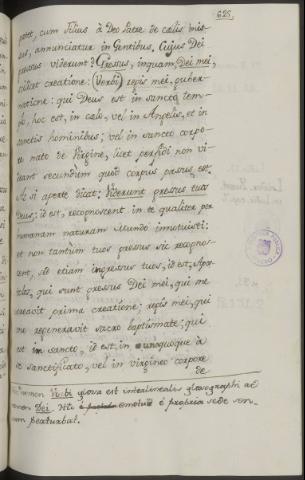 625.
potest, cum Filius à Deo Patre de cælis mis-
sus, annunciatur in Gentibus. Cujus Dei
gressus viderunt? Gressus, inquam, Dei mei,
scilicet creatione: (Verbi) regis mei, guber-
natione: qui Deus est in sancto tem-
plo, hoc est, in cælo, vel in Angelis, et in
sanctis hominibus; vel in sancto corpo-
re nato de Virgine, licet perfidi non vi-
derant secundùm quod corpus passus est.
Ac si aperte dicat: Viderunt gressus tuos
Deus; id est, recognoscent in te qualiter per
humanam naturam Mundo innotuisti:
et non tantùm tuos gressus sic recognos-
cent, sed etiam ingressus tuos, id est, Apos-
tolos, qui sunt gressus Dei mei, qui me
creavit prima creatione; regis mei, qui
me regeneravit sacro baptismate; qui
est in sancto, id est, in unoquoque à
se sanctificato, vel in virgineo corpore
de
Verbi glossa est interlinealis glossographi ad
Dei. Hîc emota è propria sede sen-
perturbat.